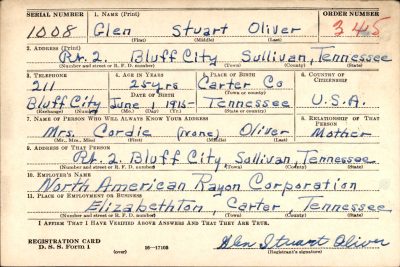 SERIAL NUMBER 1. NAME (Print) ORDER NUMBER
1008 Glen Stuart Oliver 345
(First) (Middle) (Last)
2. ADDRESS (Print)
Rt. 2. Bluff City Sullivan, Tennessee
(Number and street or R. F. D. number) (Town) (County) (State)
3. TELEPHONE 4. AGE IN YEARS 5. PLACE OF BIRTH 6. COUNTRY OF CITIZENSHIP
211 25 yrs Carter Co
DATE OF BIRTH (Town or county)
Bluff City June 1915- Tennessee U.S.A.
(Exchange) (Number) (Mo.) (Day) (Yr.) (State or country)
7. NAME OF PERSON WHO WILL ALWAYS KNOW YOUR ADDRESS 8. RELATIONSHIP OF THAT PERSON
Mrs. Cordie (none) Oliver Mother
(Mr., Mrs., Miss) (First) (Middle) (Last)
9. ADDRESS OF THAT PERSON
Rt. 2. Bluff City, Sullivan, Tennessee
(Number and street or R. F. D. number) (Town) (County) (State)
10. EMPLOYER'S NAME
North American Rayon Corporation
11. PLACE OF EMPLOYMENT OR BUSINESS
Elizabethton, Carter, Tennessee
(Number and street or R. F. D. number) (Town) (County) (State)
I AFFIRM THAT I HAVE VERIFIED ABOVE ANSWERS AND THAT THEY ARE TRUE.
REGISTRATION CARD Glen Stuart Oliver
D. S. S. Form 1 (over) 16—17105 (Registrant's signature)